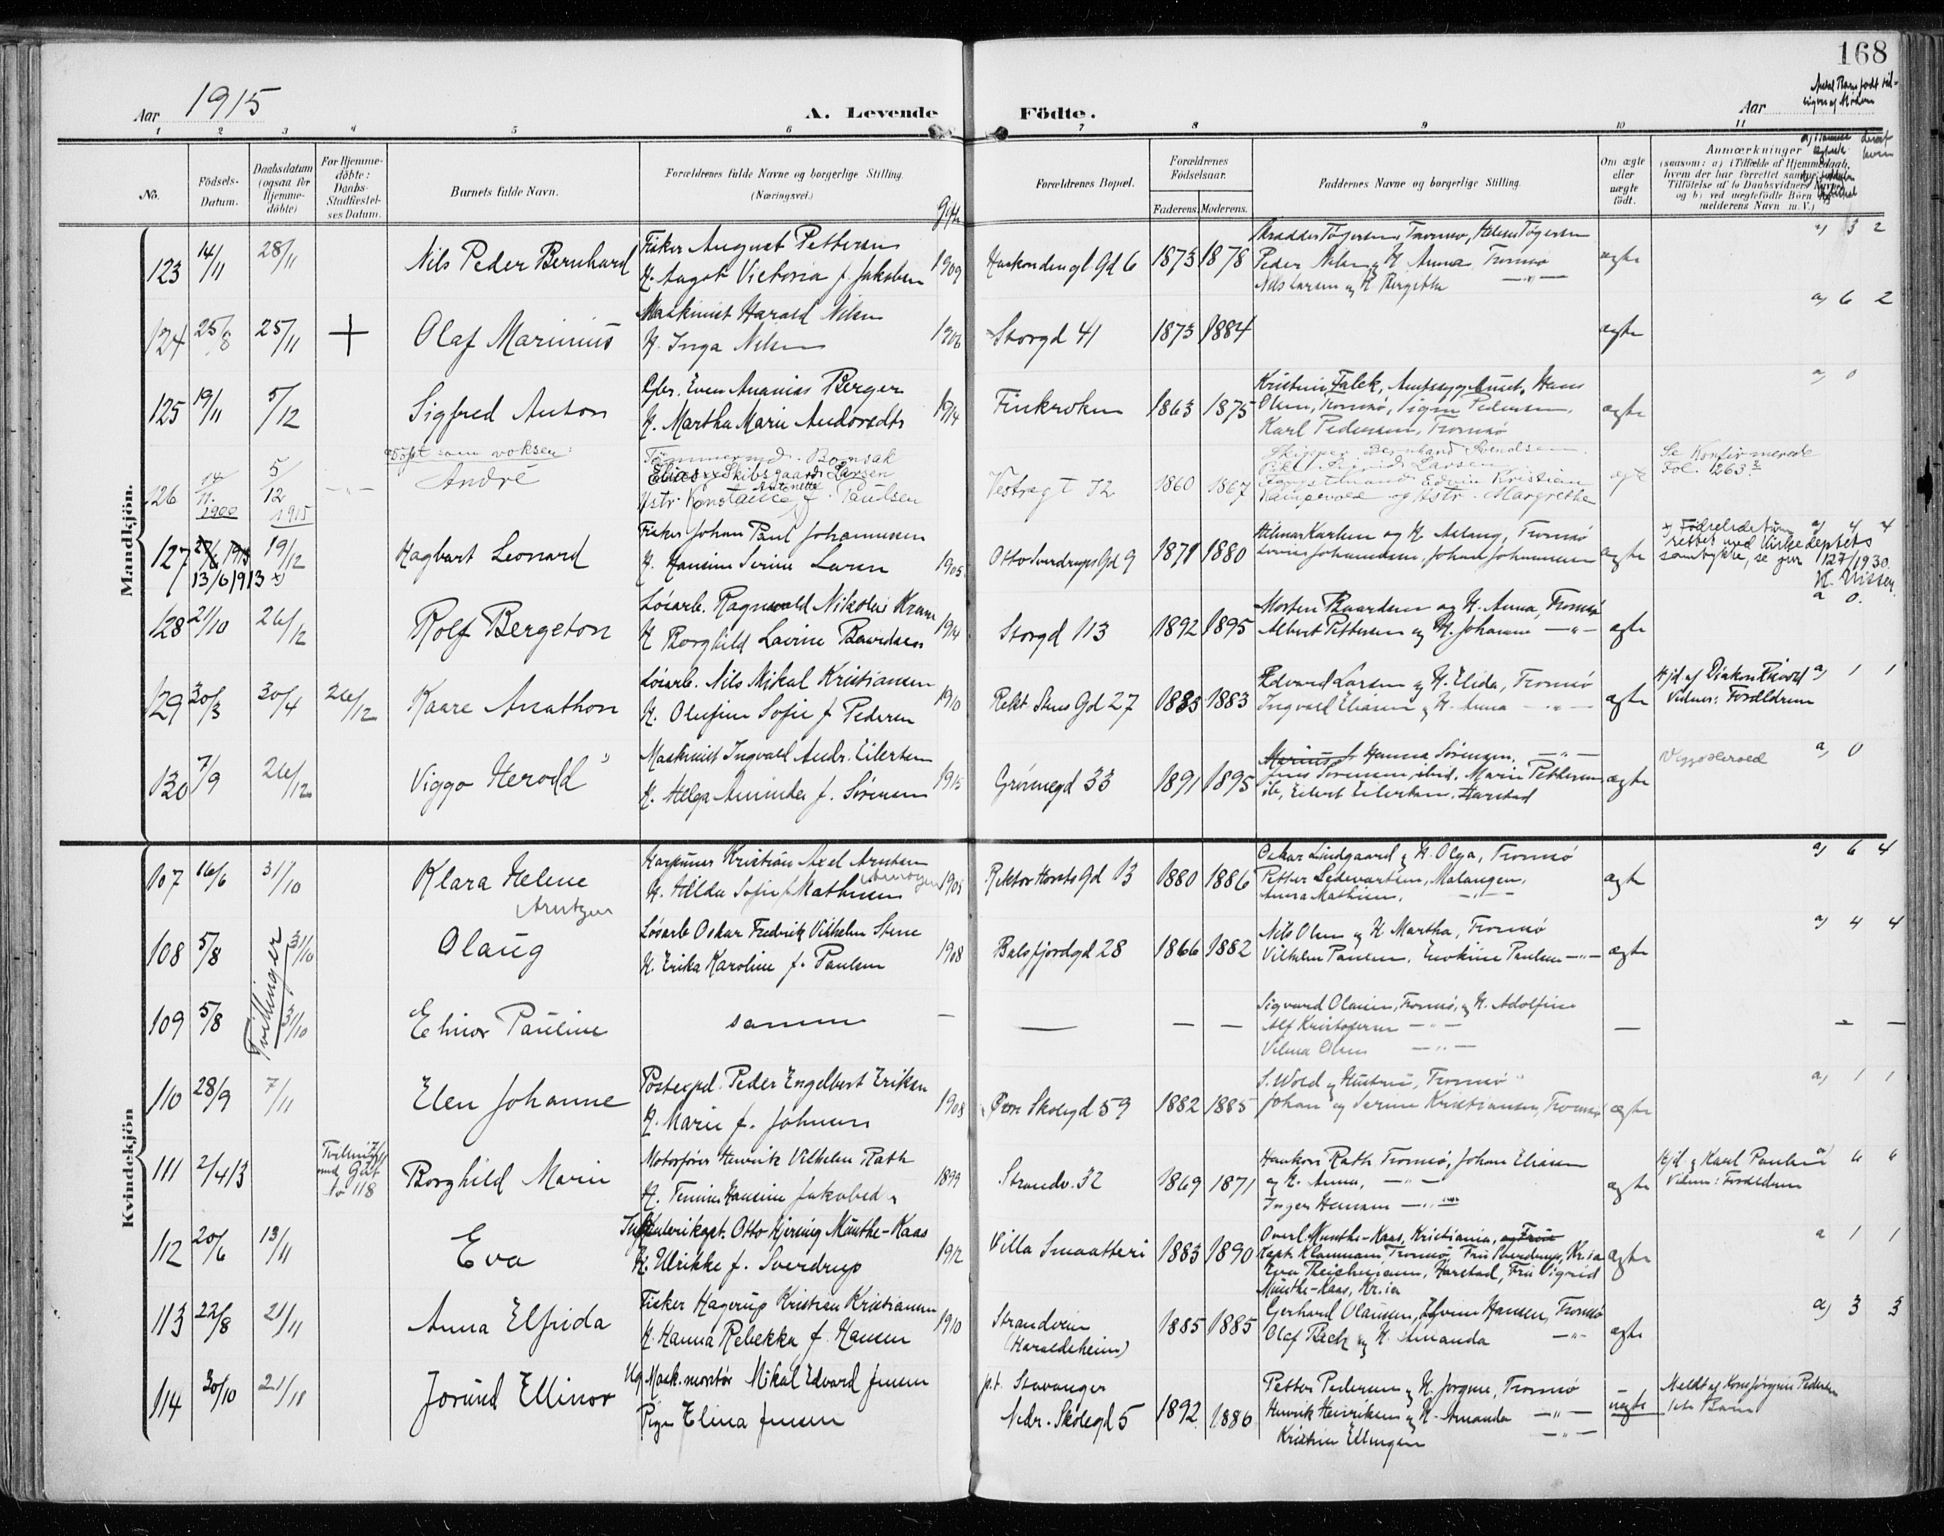 168
Aar 1915
A. Levende Födte.
Aar
Antal Børn født tidligere af Moderen
1 2 3 4 5 6 7 8 9 10 11
No.
Födsels-Datum.
Daabsdatum (ogsaa for Hjemmedöbte)
For Hjemmedöbte: Daabs-Stadfæstelses Datum.
Barnets fulde Navn.
Forældrenes fulde Navne og borgerlige Stilling. (Næringsvei.)
gifte
Forældrenes Bopæl.
Forældrenes Födselsaar.
Faderens. Moderens.
Faddernes Navne og borgerlige Stilling.
Om ægte eller uægte födt.
Anmærkninger
(saasom: a) i Tilfælde af Hjemmedaab, hvem der har forrettet samme
Mandkjön.
123 14/11 28/11 Nils Peder Bernhard
Fisker August Pettersen
H. Aagot Victoria f. Jakobsen
1909 Haakondengl. Gd 6 1873 1878
Skrædder Tøgersen, Tromsø, Helene Tøgersen
Peder Nilsen og H. Anna, Tromsø
Nils Larsen og H. Bergethe —"—
ægte a) 3 2
124 25/8 25/11 + Olaf Marinius
Maskinist Harald Nilsen
H. Inga Nilsen
1906 Storgd 41 1873 1884 ægte a) 6 2
125 19/11 5/12 Sigfred Anton
Even Ananias Berger
H. Martha Marie
1914 Finkroken 1863 1875
Kristine Falck, Hans
Olsen, Tromsø, Signe Pedersen,
Karl Pedersen, Tromsø
ægte a) 0
126 14/11 1900 5/12 1915 —"—
Døpt som voksen:
André
Tømmermd. Bonsak
Elias Skibsgaard Larsen
Hstr. Konstance Antonette f. Paulsen
Vestregt 72 1860 1867
Skipper Bernhard Svendsen
Sigrid Larsen
Edvin Kristian
og Hstr. Margrethe
ægte
Se Konfirmerede
Fol. 126
127 13/6 1913 x) 19/12 Hagbart Leonard
Fisker Johan Paul Johannesen
H. Hansine Serine Larsen
1905 Otto Sverdrups Gd 9 1871 1880
Hilmar Karlsen og H. Aslaug, Tromsø
Lovise Johannesen, Johan Johannesen
ægte
x) Fødselsdatum
rettet ved Kirkedeptets
samtykke, se jnr 127/1930.
H. Nissen
a) 4 4
128 21/10 26/12 Rolf Bergeton
Løsarb. Ragnvald Nikolai Krane
H. Borghild Lavine Baardsen
1914 Storgd 113 1892 1895
Morten Baardsen og H. Anna, Tromsø
Albert Pettersen og H. Johanne —"—
ægte a 0.
129 30/3 30/4 26/12 Kaare Anathon
Løsarb. Nils Mikal Kristiansen
H. Olufine Sofie f. Pedersen
1910 Rekt. Stens Gd 27 1885 1883
Edvard Larsen og H. Elida, Tromsø
Ingvald Eliasen og H. Anna —"—
ægte
Hjd. af Diakon
Vidner: Forældrene
a) 1 1
130 7/9 26/12 Viggo Herodd
Maskinist Ingvald Andr. Eilertsen
H. Helga Aminda f. Sørensen
1915 Grønnegd 33 1891 1895
Marius & Hanna Sørensen, —"—
Jens Sørensen, ibid, Marie Pettersen
ib, Eilert Eilertsen, Harstad
ægte a) 0
Kvindekjön
107 16/6 31/10 Klara Helene
Arntzen
Harpuner Kristian Axel Arntsen
Arntzen
H. Hilda Sofie f. Mathisen
1905 Rektor Horsts Gd 13 1880 1886
Oskar Lindgaard og H. Olga, Tromsø
Petter Sedevartsen, Malangen,
Anna Mathisen, —"—
ægte a) 6 4
108 5/8 31/10 Tvillinger Olaug
Løsarb. Oskar Fredrik Vilhelm Stene
H. Erika Karoline f. Paulsen
1908 Balsfjordgd 28 1866 1882
Nils Olsen og H. Martha, Tromsø
Vilhelm Paulsen, Paulsen —"—
ægte a) 4 4
109 5/8 31/10 Elinor Pauline
samme — — — —
Sigvard Olausen, Tromsø, og H. Adolfine
Alf Kristofersen —"—
Vilma Olsen —"—
— — —
110 28/9 7/11 Elen Johanne
Postexpd. Peder Engelbert Eriksen
H. Marie f. Johnsen
1908 Øvre Skolegd 59 1882 1885
S. Wold og Hustru, Tromsø
Johan og Serine Kristiansen, Tromsø
ægte a) 1 1
111 2/4 13
Tvilling med Gut No 118
Borghild Marie
Motorfører Henrik Vilhelm Rath
H. Hansine Jakobsd
1899 Strandv. 32 1869 1871
Haakon Rath Tromsø, Johan Eliasen
og H. Anna, —"—
Inger Hansen —"—
ægte
Hjd. af Karl Paulsen
Vidner: Forældrene
a) 6 6
112 20/6 13/11 Eva
Ingeniørkapt. Otto Hjersing Munthe-Kaas
H. Ulrikke f. Sverdrup
1912 Villa Smaatteri 1883 1890
Overl. Munthe-Kaas, Kristiania,
Kapt. Klaumann Tromsø, Fru Sverdrup, Kr.ia
Harstad, Fru Sigrid
Munthe-Kaas, Kr.ia
ægte a 1 1
113 22/8 21/11 Anna Elfrida
Fisker Hagerup Kristian Kristiansen
H. Hanna Rebekka f. Hansen
1910 Strandveien
(Haraldsheim)
1885 1885
Gerhard Olausen, Hansen, Tromsø
Olaf Beck og H. Amanda —"—
ægte a) 3 3
114 30/10 Jorund Ellinor
Ug. Mask.montør Mikal Edvard Jensen
Pige Elina Jensen
p.t. Stavanger
Nedr. Skolegd 5 1892 1886
Petter Pedersen og H. Jorgine, Tromsø
Henrik Henriksen og H. Amanda —"—
Kristine Ellingsen —"—
uægte
Meldt af Jørgine Pedersen
1ste Barn